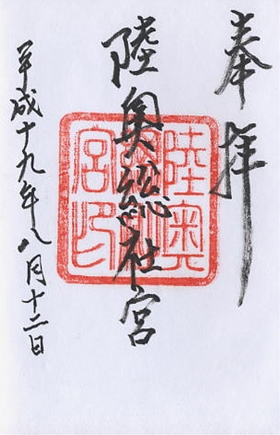 奉拝
陸奥総社宮
陸奥総社宮印
平成十九年八月十二日